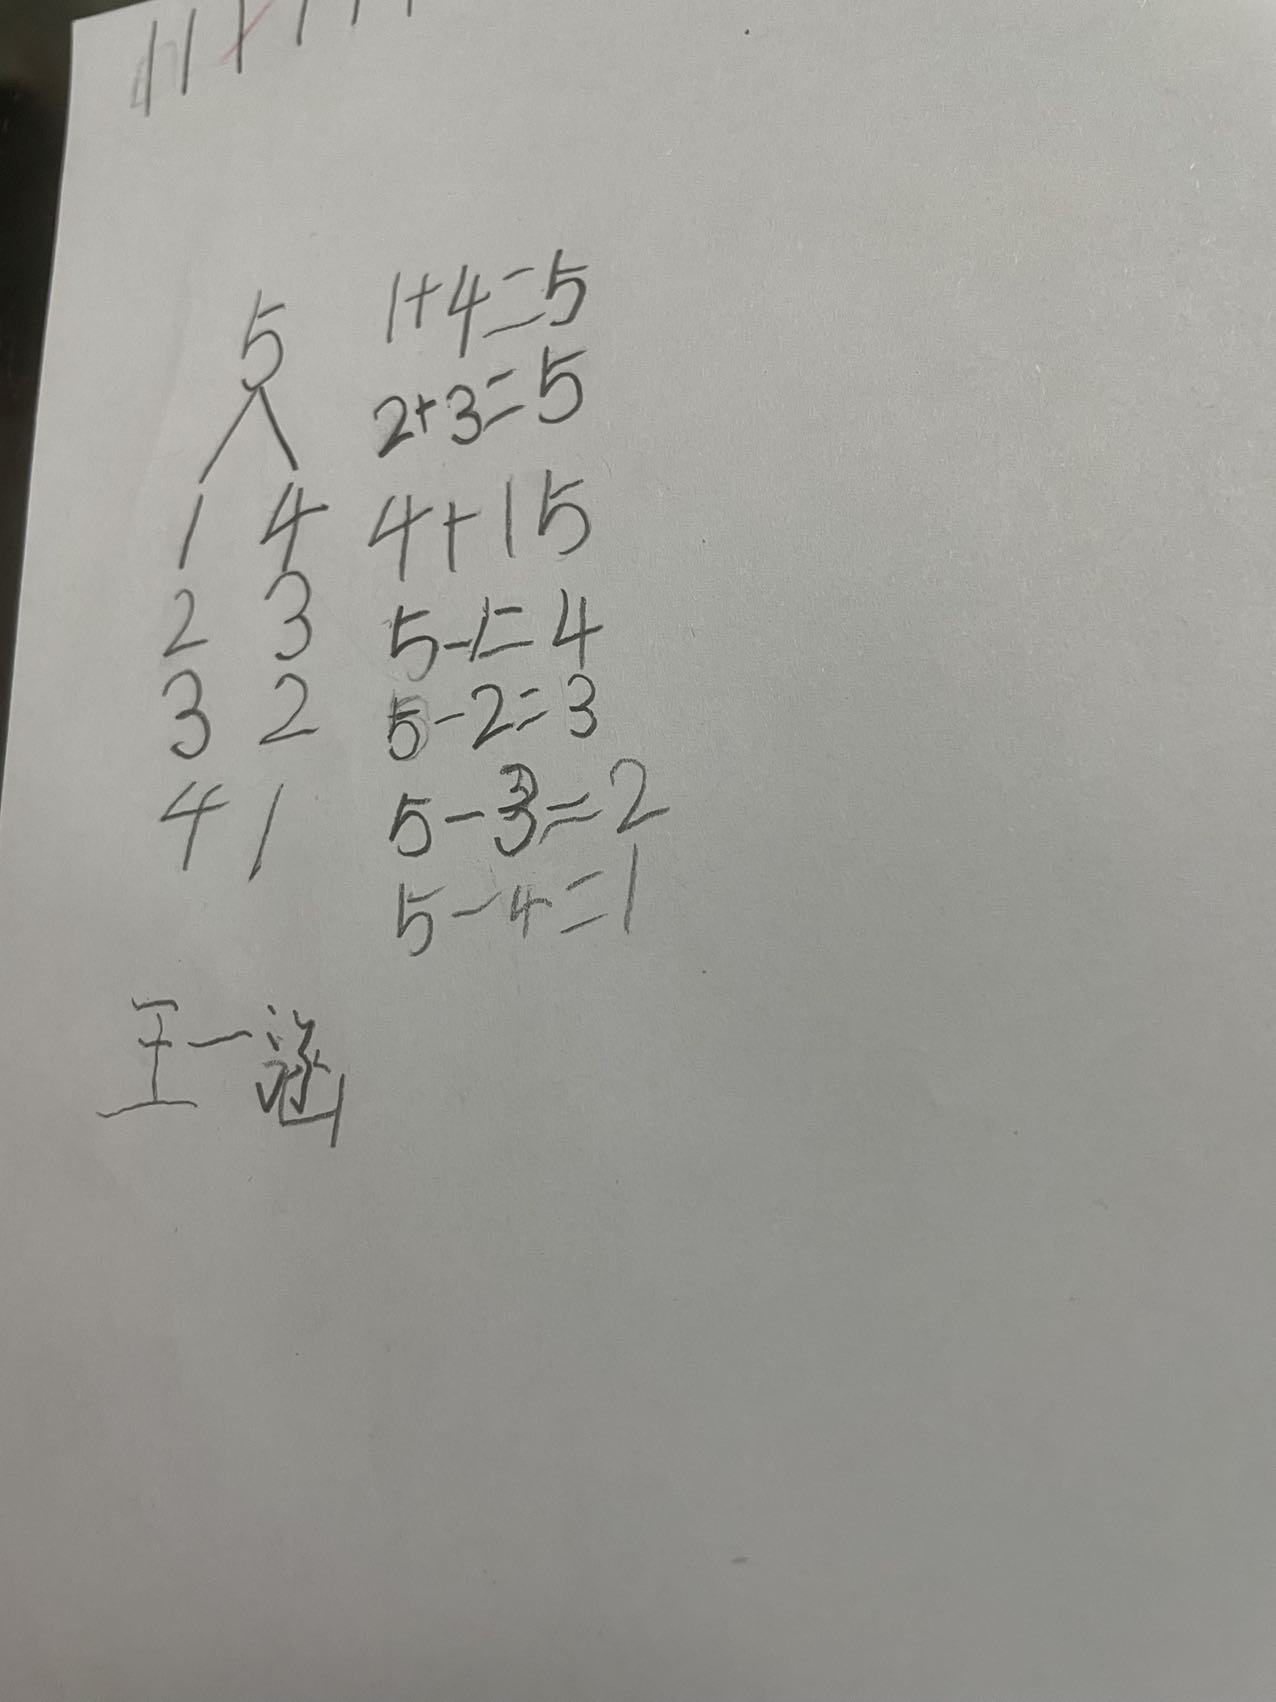 5
1+4=5
2+3=5
1 4 4+15
2 3 5-1=4
3 2 5-2=3
4 1 5-3=2
5-4=1
王一涵